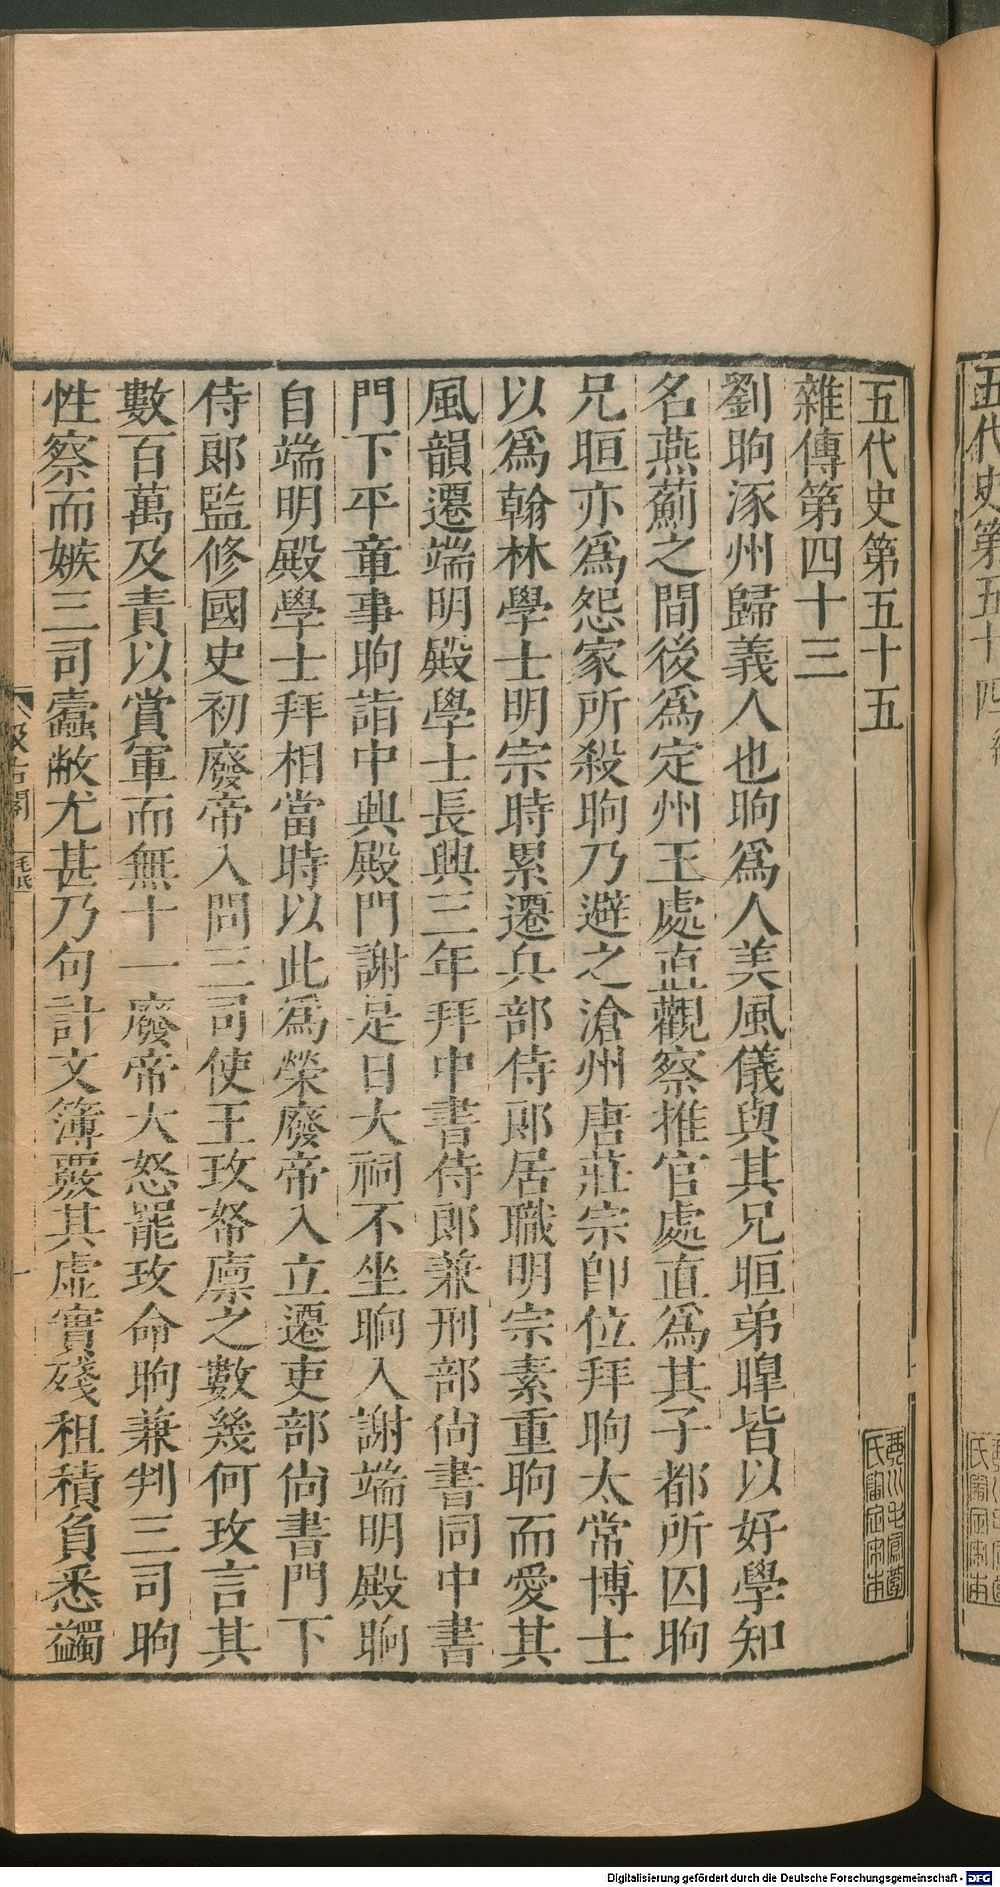 五代史第五十五
雜傳第四十三
劉昫涿州歸義人也昫爲人美風儀與其兄暄弟暭皆以好學知
名燕薊之間後爲定州王處直觀察推官處直爲其子都所囚昫
兄暄亦爲怨家所殺昫乃避之滄州唐莊宗卽位拜昫太常博士
以爲翰林學士明宗時累遷兵部侍郎居職明宗素重昫而愛其
風韻遷端明殿學士長興三年拜中書侍郎兼刑部尙書同中書
門下平章事昫詣中興殿門謝是日大祠不坐昫入謝端明殿昫
自端明殿學士拜相當時以此爲榮廢帝入立遷吏部尙書門下
侍郎監修國史初廢帝入問三司使王玫帑廩之數幾何玫言其
數百萬及責以賞軍而無十一廢帝大怒罷玫命昫兼判三司昫
性察而嫉三司蠹敝尤甚乃句計文簿覈其虛實殘租積負悉蠲
汲古閣
毛氏
一
五代史第五十四
Digitalisierung gefördert durch die Deutsche Forschungsgemeinschaft - DFG